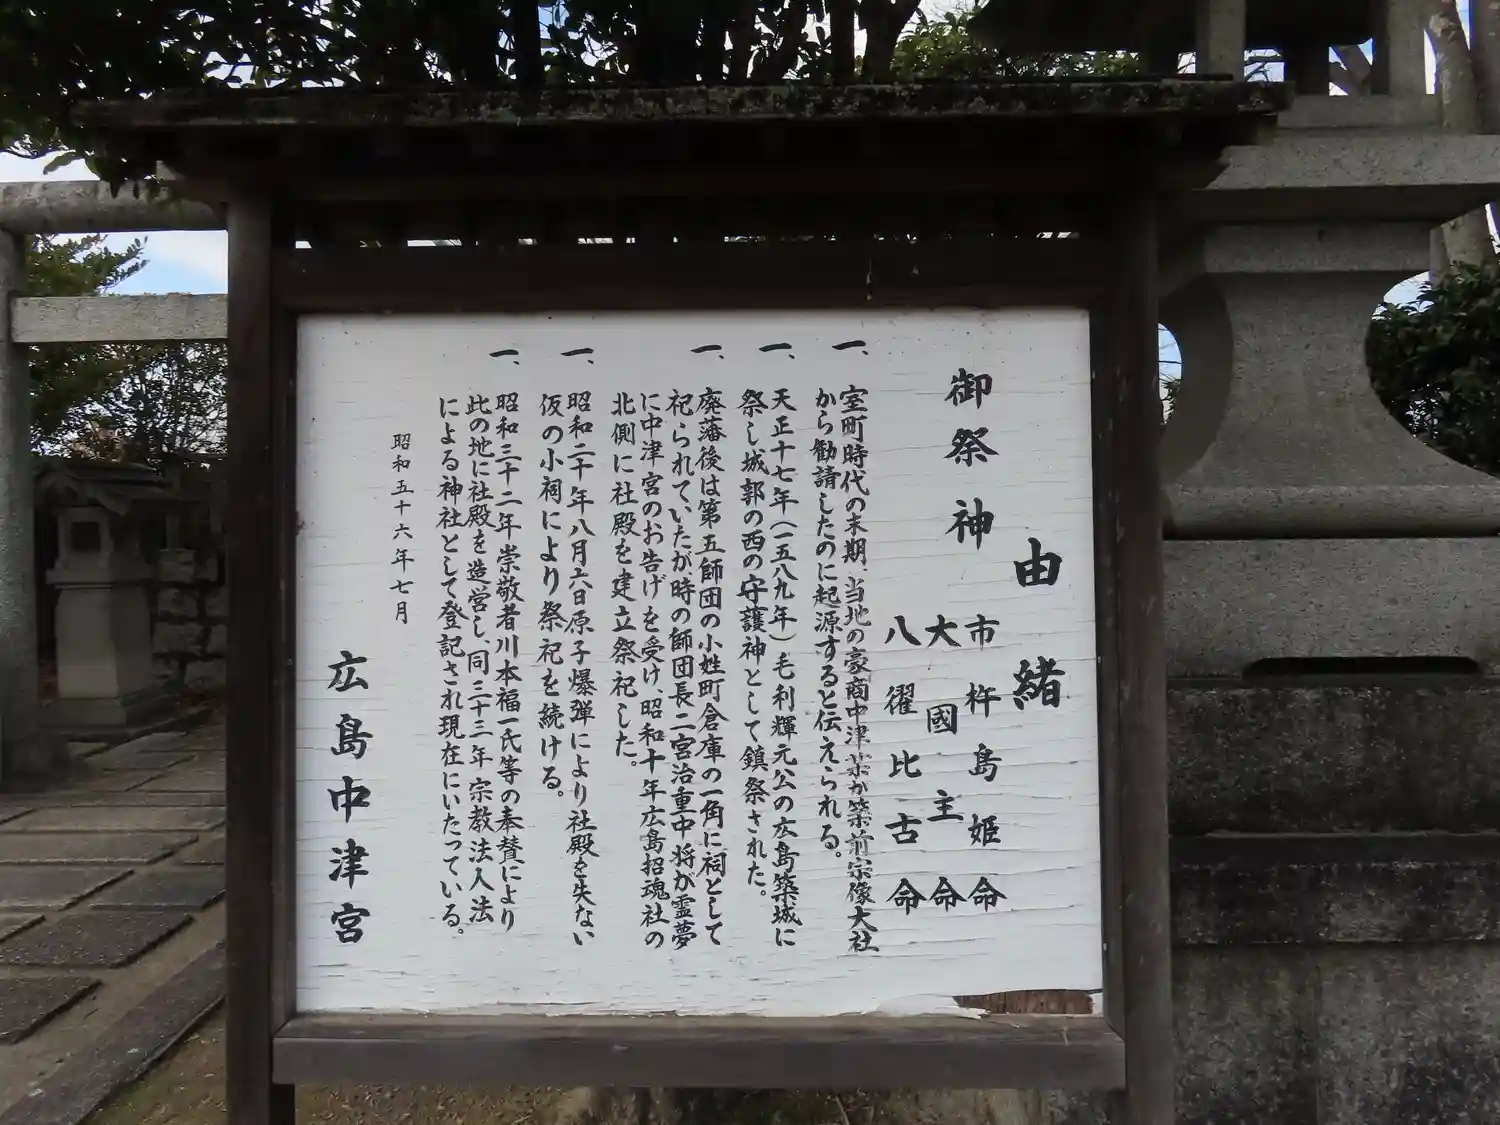 由緒
御祭神
市杵島姫命
大國主命
八濯比古命
一、室町時代の末期、当地の豪商中津 が築前宗像大社
から勧請したのに起源すると伝えられる。
一、天正十七年(一五八九年)毛利輝元公の広島築城に
祭し城郭の西の守護神として鎮祭された。
一、廃藩後は第五師団の小姓町倉庫の一角に祠として
祀られていたが、時の師団長二宮治重中将が霊夢
に中津宮のお告げを受け、昭和十年広島招魂社の
北側に社殿を建立祭祀した。
一、昭和二十年八月六日原子爆弾により社殿を失ない
仮の小祠により祭祀を続ける。
一、昭和三十二年崇敬者川本福一氏等の奉賛により
此の地に社殿を造営し、同三十三年宗教法人法
による神社として登記され現在にいたっている。
昭和五十六年七月
広島中津宮